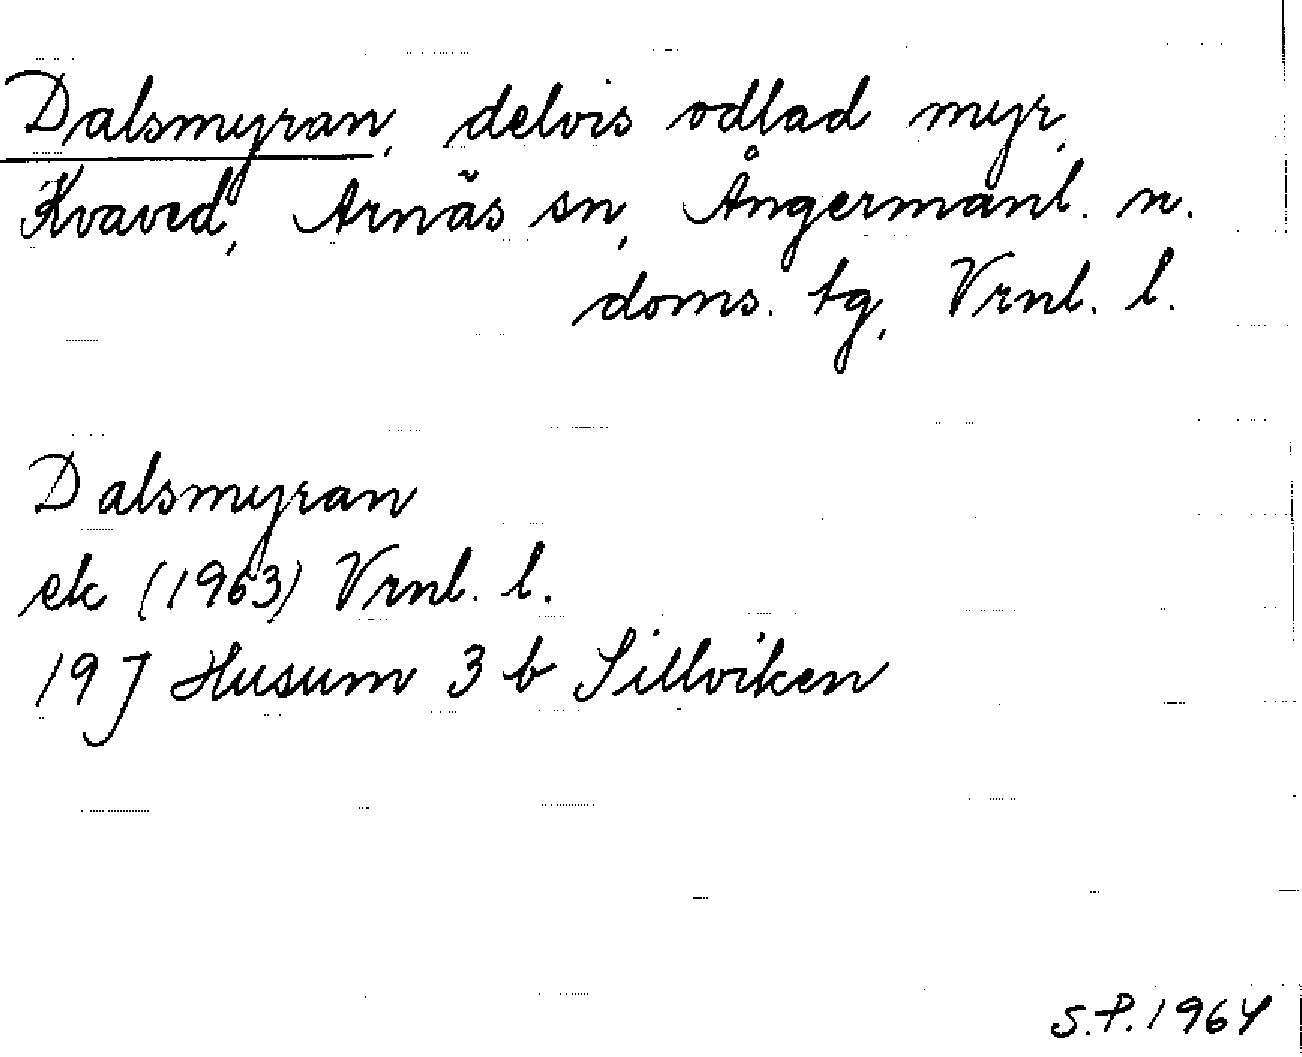 Dalsmyran, delvis odlad myr,
Kvaved, Arnäs sn, Ångermanl. n.
doms. tg, Vrnl. l.
Dalsmyran
ek (1963) Vrnl. l.
19 J Husum 3 b Sillviken
S.P. 1964